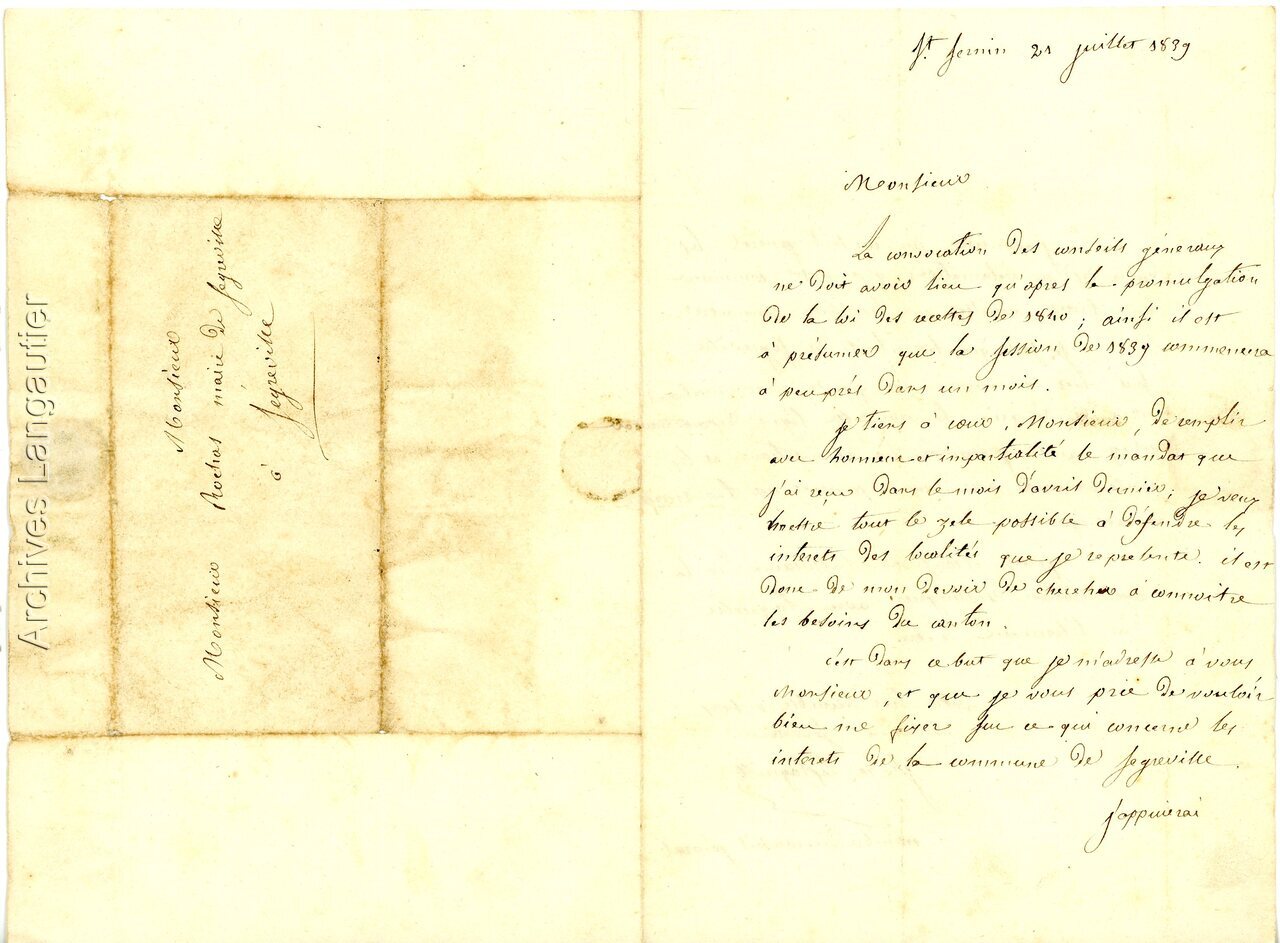 Archives Langautier
Monsieur
Monsieur Rochas maire de Segreville
à
Segreville
St. Sernin 21 juillet 1839
Monsieur
La convocation des conseils géneraux
ne doit avoir lieu qu'apres la promulgation
de la loi des recettes de 1840 ; ainsi il est
à présumer que la session de 1839 commencera
à peu prés dans un mois.
je tiens à cœur, Monsieur, de remplir
avec honneur et impartialité le mandat que
j'ai reçu dans le mois d'avril dernier; je veux
mettre tout le zele possible à défendre les
interets des localités que je represente. il est
donc de mon devoir de chercher à connoitre
les besoins du canton.
c'est dans ce but que je m'adresse à vous
Monsieur, et que je vous prie de vouloir
bien me fixer sur ce qui concerne les
interets de la commune de Segreville.
j'appuierai